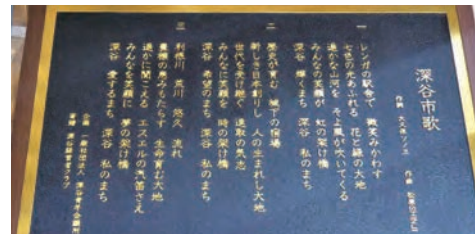 深谷市歌
一
レンガの駅舎で 微笑みかわす
七色の光あふれる 花と緑の大地
遥かな山河を そよ風が吹いてくる
みんなの笑顔が 虹の架け橋
深谷 輝くまち 深谷 私のまち
二
歴史が育む 城下の宿場
新しき日本創りし 人の生まれし大地
世代を受け継ぐ 進取の気志
みんなに笑顔を 時の架け橋
深谷 希望のまち 深谷 私のまち
三
利根川 荒川 悠久 流れ
豊郷の恵みもたらす 生命育む大地
遥かに聞こえる エスエルの汽笛さえ
みんなを笑顔に 夢の架け橋
深谷 愛するまち 深谷 私のまち